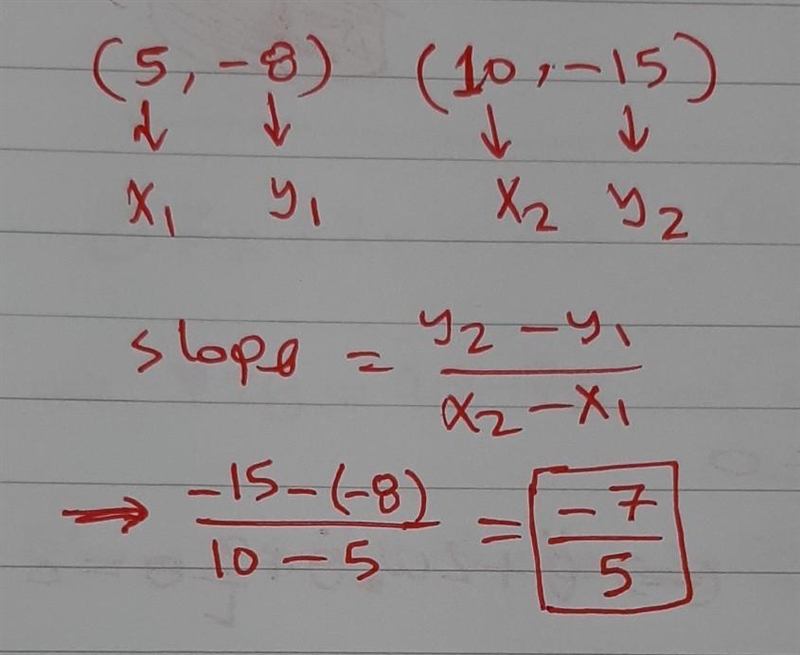 (5, -8) (10, -15)
↓ ↓ ↓ ↓
x₁ y₁ x₂ y₂
slope = y₂ - y₁ / x₂ - x₁
⇒ -15 - (-8) / 10 - 5 = -7 / 5